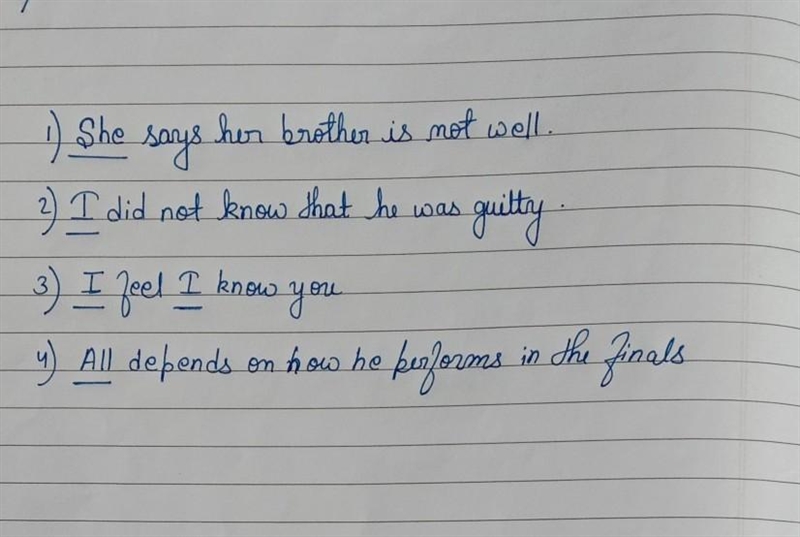 1) She says her brother is not well.
2) I did not know that he was guilty.
3) I feel I know you
4) All depends on how he performs in the finals